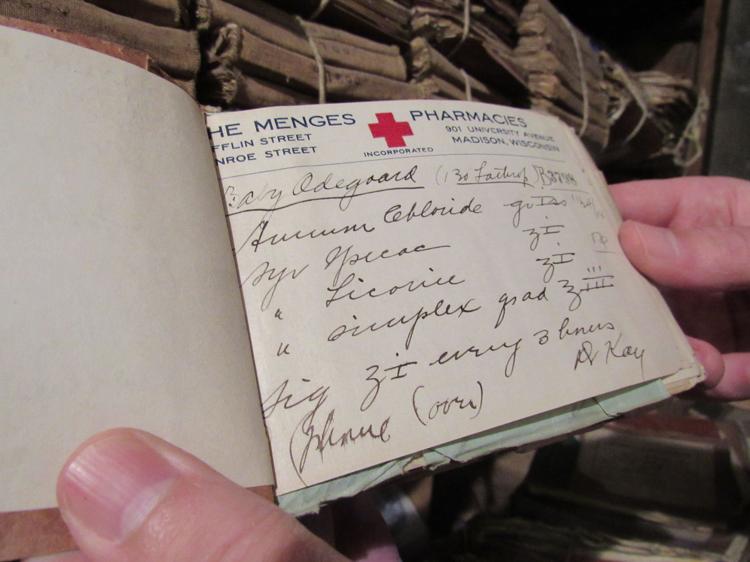 HE MENGES PHARMACIES
FFLIN STREET 901 UNIVERSITY AVENUE
NROE STREET INCORPORATED MADISON, WISCONSIN
Baby Odegaard (130 Lathrop) B8798
Ammon Chloride gr
Syr Ipecac ʒI
" Licorice ʒI
" simplex qsad ʒIII
Sig ʒI every 3 hours
Dr Kay
(phone (over)